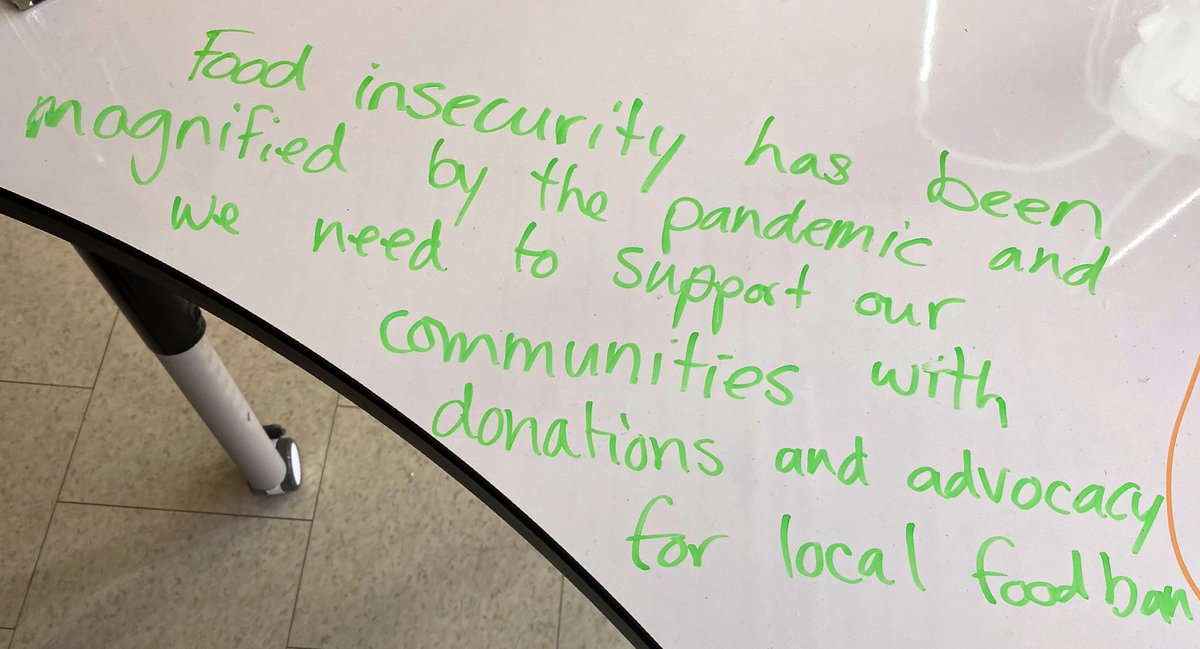 Food insecurity has been
magnified by the pandemic and
we need to support our
communities with
donations and advocacy
for local foodban